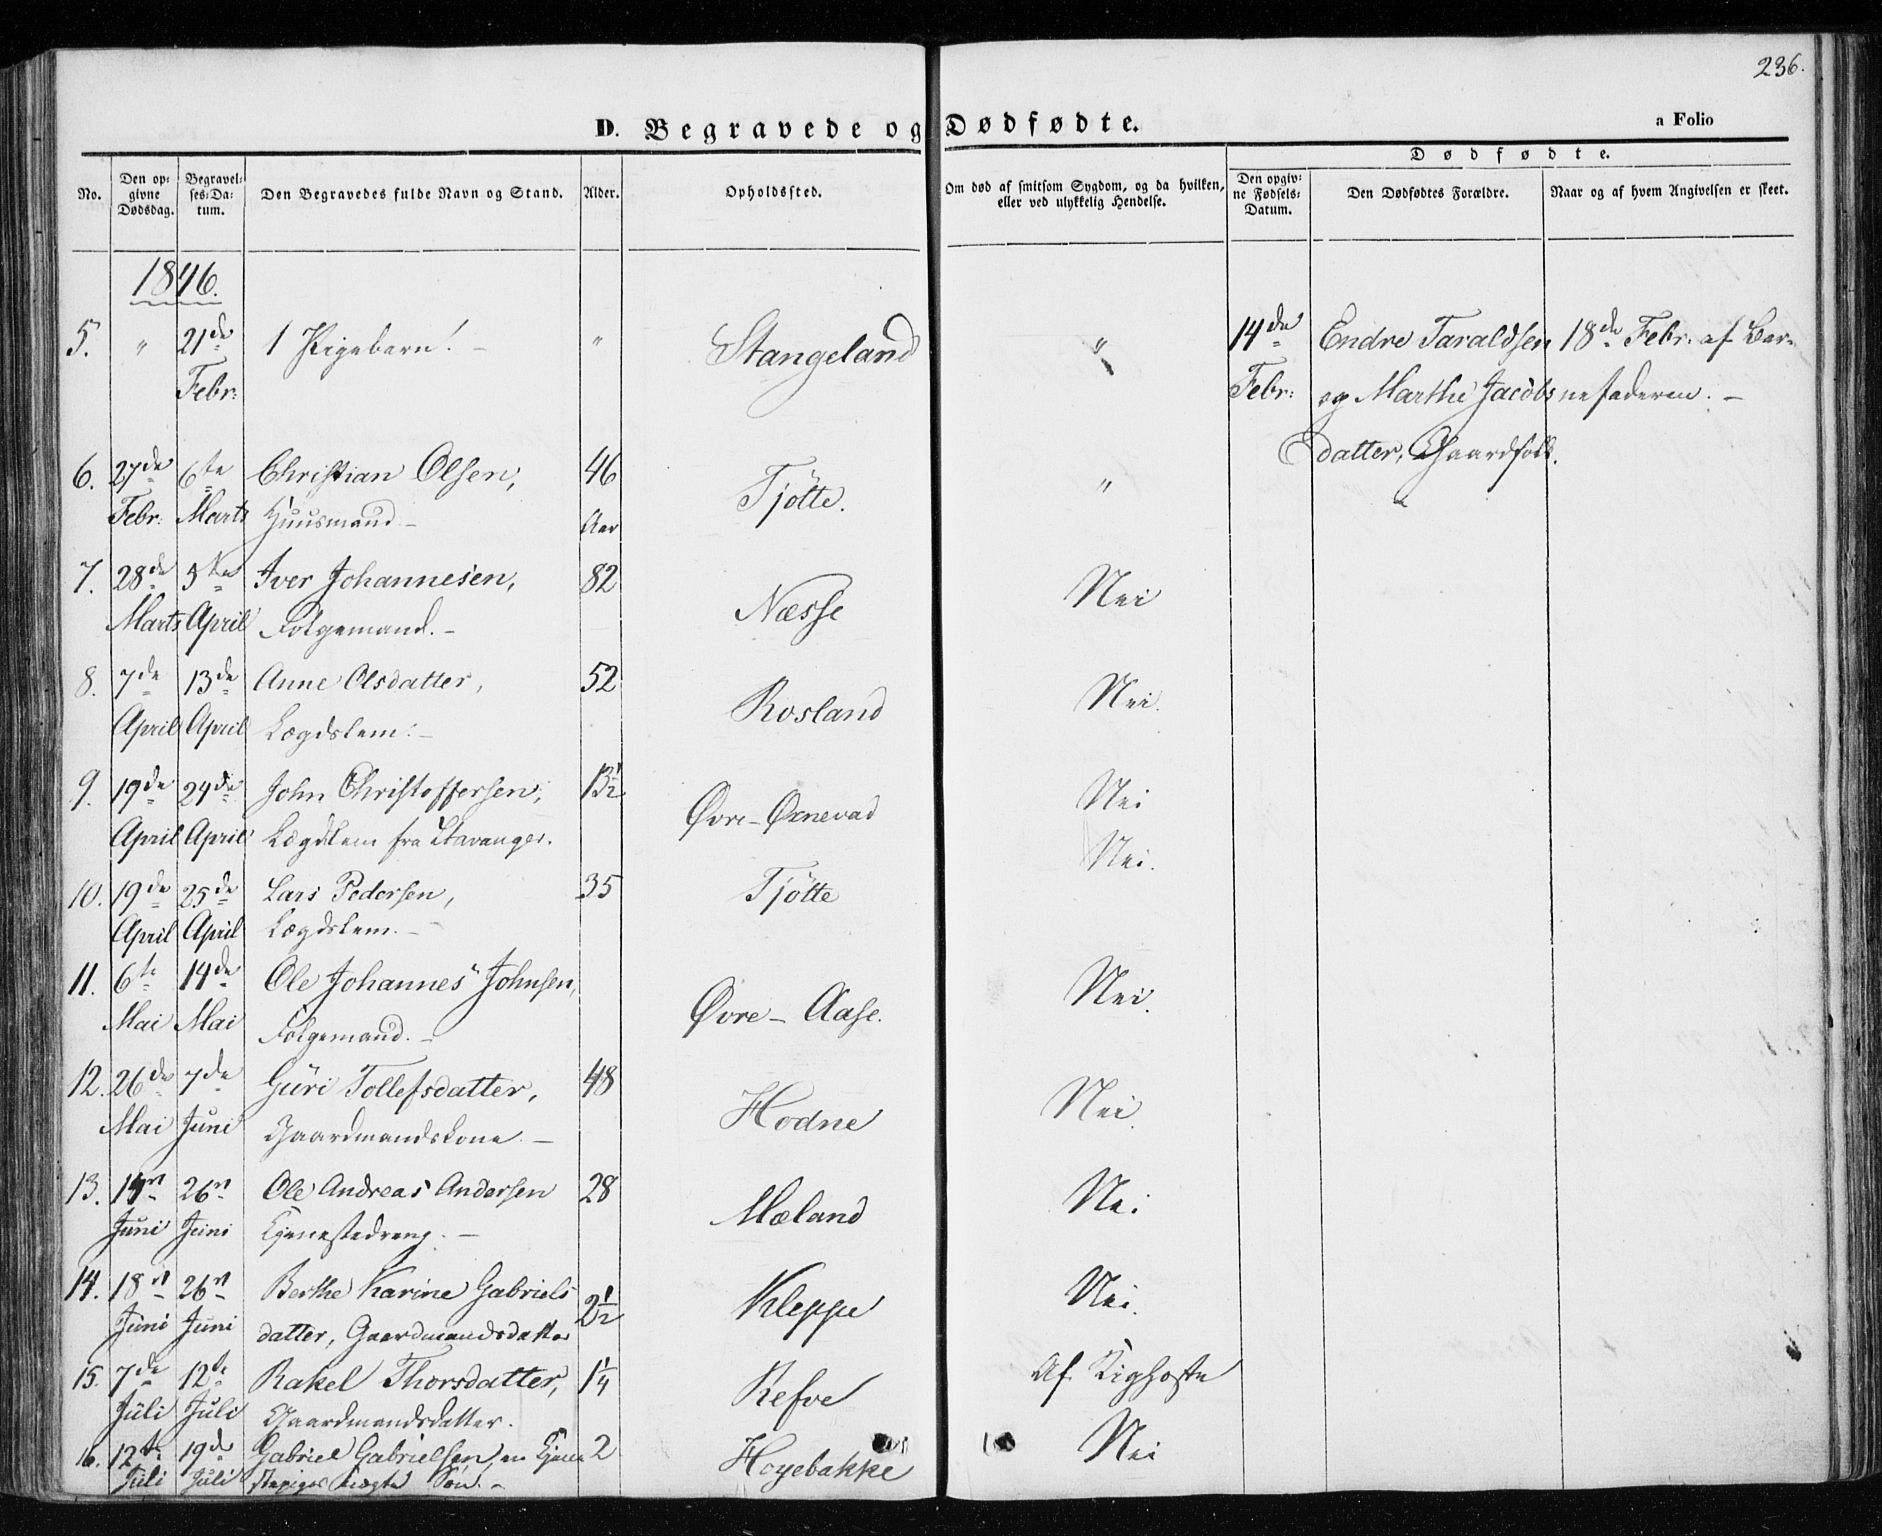 236.
D. Begravede og Dødfødte.
a Folio
No.
Den op-
givne
Dødsdag.
Begravel-
ses-Da-
tum.
Den Begravedes fulde Navn og Stand.
Alder.
Opholdssted.
Om død af smitsom Sygdom, og da hvilken,
eller ved ulykkelig Hendelse.
Dødfødte.
Den opgiv-
ne Fødsels-
Datum.
Den Dødfødtes Forældre.
Naar og af hvem Angivelsen er skeet.
1846.
5. " 21de 1 Pigebarn! - " Stangeland " 14de Endre Taraldsen 18de Febr. af Bar-
Febr: Febr: og Marthe Jacobs nefaderen. -
datter, Gaardfolk.
6. 27de 6te Christian Olsen, 46 Tjötte. " "
Febr: Marts Huusmand - Aar
7. 28de 5te Iver Johannesen, 82 Næsse Nei
Marts April Folgemand. -
8. 7de 13de Anne Olsdatter, 52 Rosland Nei.
April April Lægdslem. -
9. 19de 24de John Christoffersen, 13½ Øvre-Øxnevad Nei
April April Lægdslem fra Stavanger.
10. 19de 25de Lars Pedersen, 35 Tjötte Nei.
April April Lægdslem. -
11. 6te 14de Ole Johannes Johnsen, Øvre-Aase. Nei.
Mai Mai Folgemand. -
12. 26de 7de Güri Tollefsdatter, 48 Hodne Nei.
Mai Juni Gaardmandskone. -
13. 19n 26n Ole Andreas Andersen 28 Mæland Nei
Juni Juni Tjenestedreng. -
14. 18n 26n Berthe Karine Gabriels 2½ Kleppe Nei.
Juni Juni datter, Gaardmandsdatter
15. 7de 12te Rakel Thorsdatter, 1¼ Refve Af Kighoste
Juli Juli Gaardmandsdatter.
16. 12te 19de Gabriel Gabrielsen, en Tjene 2 Hoyebakke Nei
Juli Juli stepiges uægte Søn. -